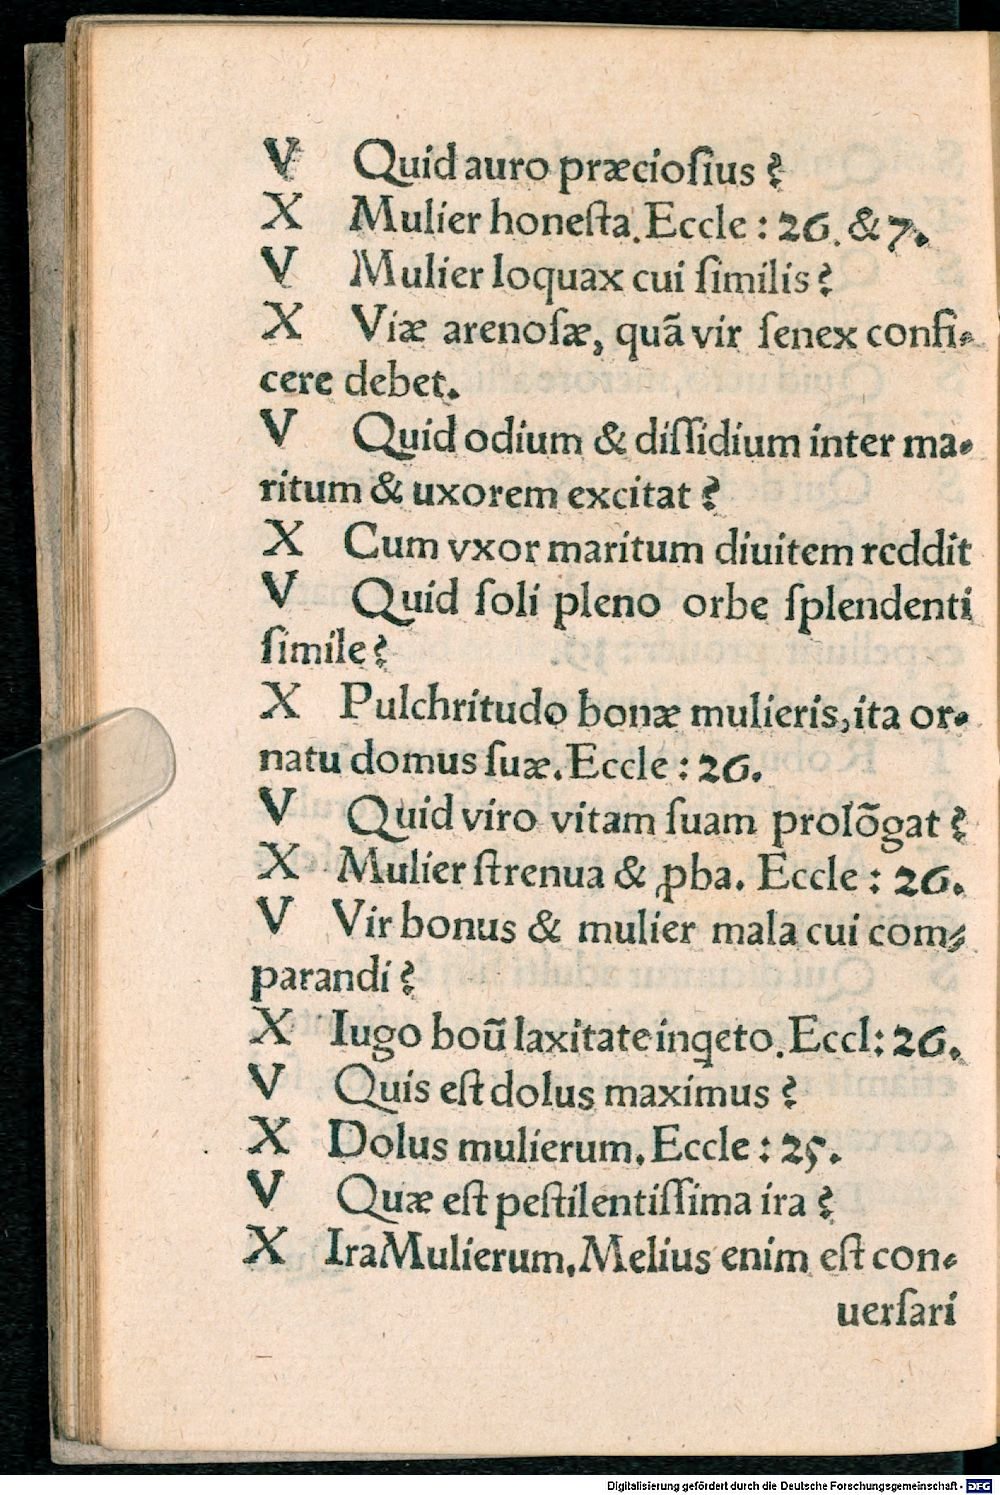 V Quid auro præcioſius?
X Mulier honeſta. Eccle : 26. & 7.
V Mulier loquax cui ſimilis?
X Viæ arenoſæ, quā vir ſenex confi-
cere debet.
V Quid odium & diſſidium inter ma-
ritum & uxorem excitat?
X Cum vxor maritum diuitem reddit
V Quid ſoli pleno orbe ſplendenti
ſimile?
X Pulchritudo bonæ mulieris, ita or-
natu domus ſuæ. Eccle : 26.
V Quid viro vitam ſuam prolōgat?
X Mulier ſtrenua & ꝓba. Eccle : 26.
V Vir bonus & mulier mala cui com-
parandi?
X Iugo boū laxitate inqeto. Eccl: 26.
V Quis eſt dolus maximus?
X Dolus mulierum. Eccle : 25.
V Quæ eſt peſtilentiſſima ira?
X Ira Mulierum. Melius enim eſt con-
uerſari
Digitalisierung gefördert durch die Deutsche Forschungsgemeinschaft - DFG